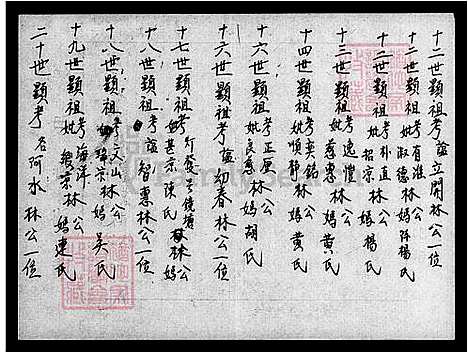 十二世顯祖考諡立開林公一位
十二世顯祖考有淮林公
妣淑德林媽阡楊氏
十二世顯祖考朴直林公
妣招宗 媽楊氏
十三世顯祖考逸惰林公
妣慈惠林媽黃氏
十四世顯祖考奕銘林公
妣順靜林媽黃氏
十六世顯祖考正厚林公
妣良慈林媽胡氏
十六世顯祖考諡如春林公一位
十七世顯祖考 林公
妣甚宗陳氏 媽
十八世顯祖考諡智惠林公一位
十八世顯祖考文山林公
妣 宗林媽吳氏
十九世顯祖考海洋林公
妣 宗林媽連氏
二十世顯考名阿水林公一位